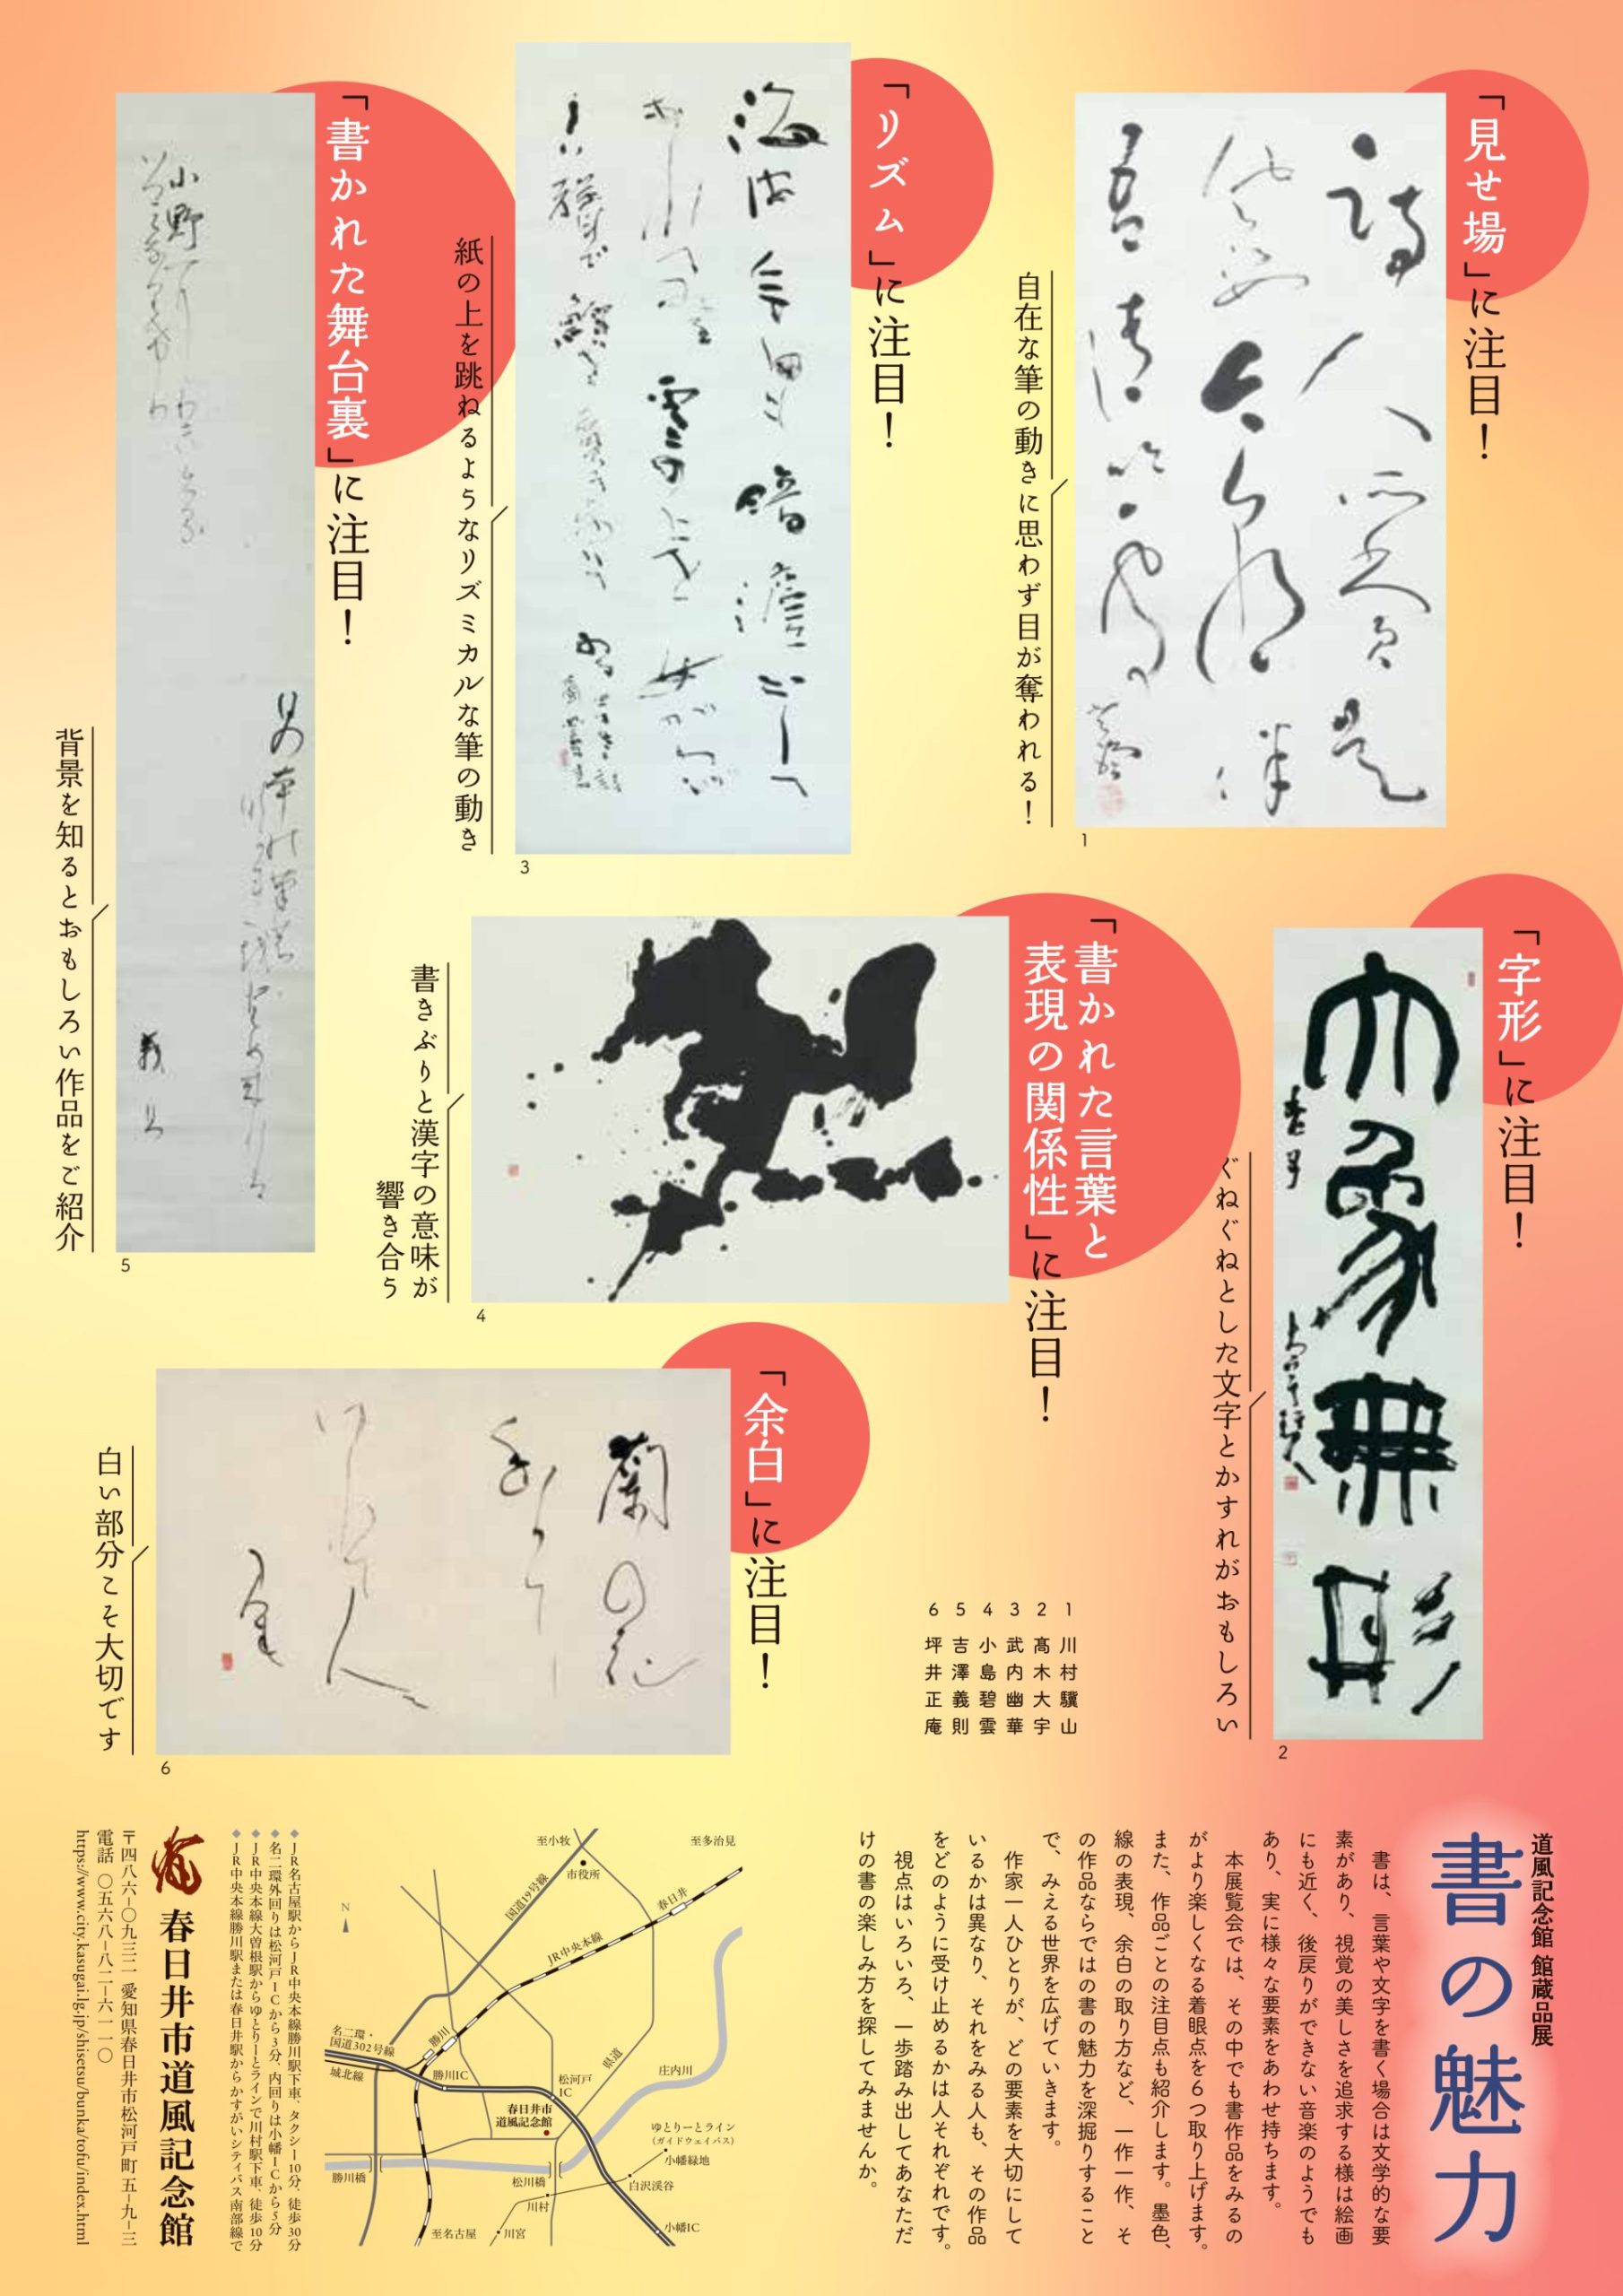 「見せ場」に注目！
自在な筆の動きに思わず目が奪われる！
1
「リズム」に注目！
紙の上を跳ねるようなリズミカルな筆の動き
3
「書かれた舞台裏」に注目！
背景を知るとおもしろい作品をご紹介
5
「字形」に注目！
ぐねぐねとした文字とかすれがおもしろい
大象無形
2
「書かれた言葉と
表現の関係性」に注目！
書きぶりと漢字の意味が
響き合う
4
「余白」に注目！
白い部分こそ大切です
6
1 川村驥山
2 髙木大宇
3 武内幽華
4 小島碧雲
5 吉澤義則
6 坪井正庵
道風記念館 館蔵品展
書の魅力
書は、言葉や文字を書く場合は文学的な要
素があり、視覚の美しさを追求する様は絵画
にも近く、後戻りができない音楽のようでも
あり、実に様々な要素をあわせ持ちます。
本展覧会では、その中でも書作品をみるの
がより楽しくなる着眼点を6つ取り上げます。
また、作品ごとの注目点も紹介します。墨色、
線の表現、余白の取り方など、一作一作、そ
の作品ならではの書の魅力を深掘りすること
で、みえる世界を広げていきます。
作家一人ひとりが、どの要素を大切にして
いるかは異なり、それをみる人も、その作品
をどのように受け止めるかは人それぞれです。
視点はいろいろ、一歩踏み出してあなただ
けの書の楽しみ方を探してみませんか。
至小牧
市役所
至多治見
国道19号線
春日井
JR中央本線
N
名二環・
国道302号線
勝川
城北線
勝川IC
松河戸
IC
県道
庄内川
春日井市
道風記念館
ゆとりーとライン
（ガイドウェイバス）
小幡緑地
白沢渓谷
勝川橋
松川橋
川村
川宮
至名古屋
小幡IC
◆JR名古屋駅からJR中央本線勝川駅下車、タクシー10分、徒歩30分
◆名二環外回りは松河戸ICから3分、内回りは小幡ICから5分
◆JR中央本線大曽根駅からゆとりーとラインで川村駅下車、徒歩10分
◆JR中央本線勝川駅または春日井駅からかすがいシティバス南部線で
春日井市道風記念館
〒四八六-〇九三二 愛知県春日井市松河戸町五-九-三
電話 〇五六八-八二-六一一〇
https://www.city.kasugai.lg.jp/shisetsu/bunka/tofu/index.html